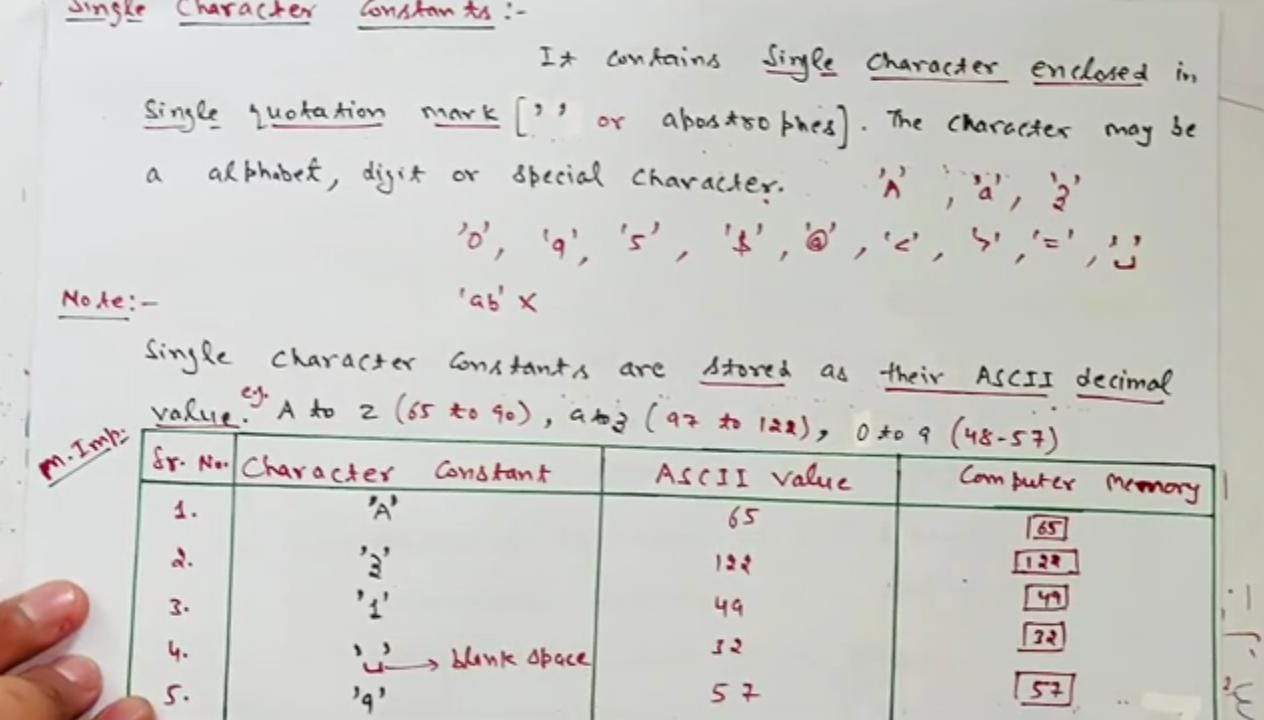 Single Character Constants :-
It contains Single Character enclosed in
Single quotation mark [' ' or apostrophes]. The character may be
a alphabet, digit or special character. 'A', 'a', 'z'
'0', '9', '5', '$', '@', '<', '>', '=', '␣'
'ab' ×
Note:-
Single character constants are stored as their ASCII decimal
value. e.g. A to Z (65 to 90), a to z (97 to 122), 0 to 9 (48-57)
M. Imp:
Sr. No. Character Constant ASCII value Computer memory
1. 'A' 65 65
2. 'z' 122 122
3. '1' 49 49
4. '␣' → blank space 32 32
5. '9' 57 57